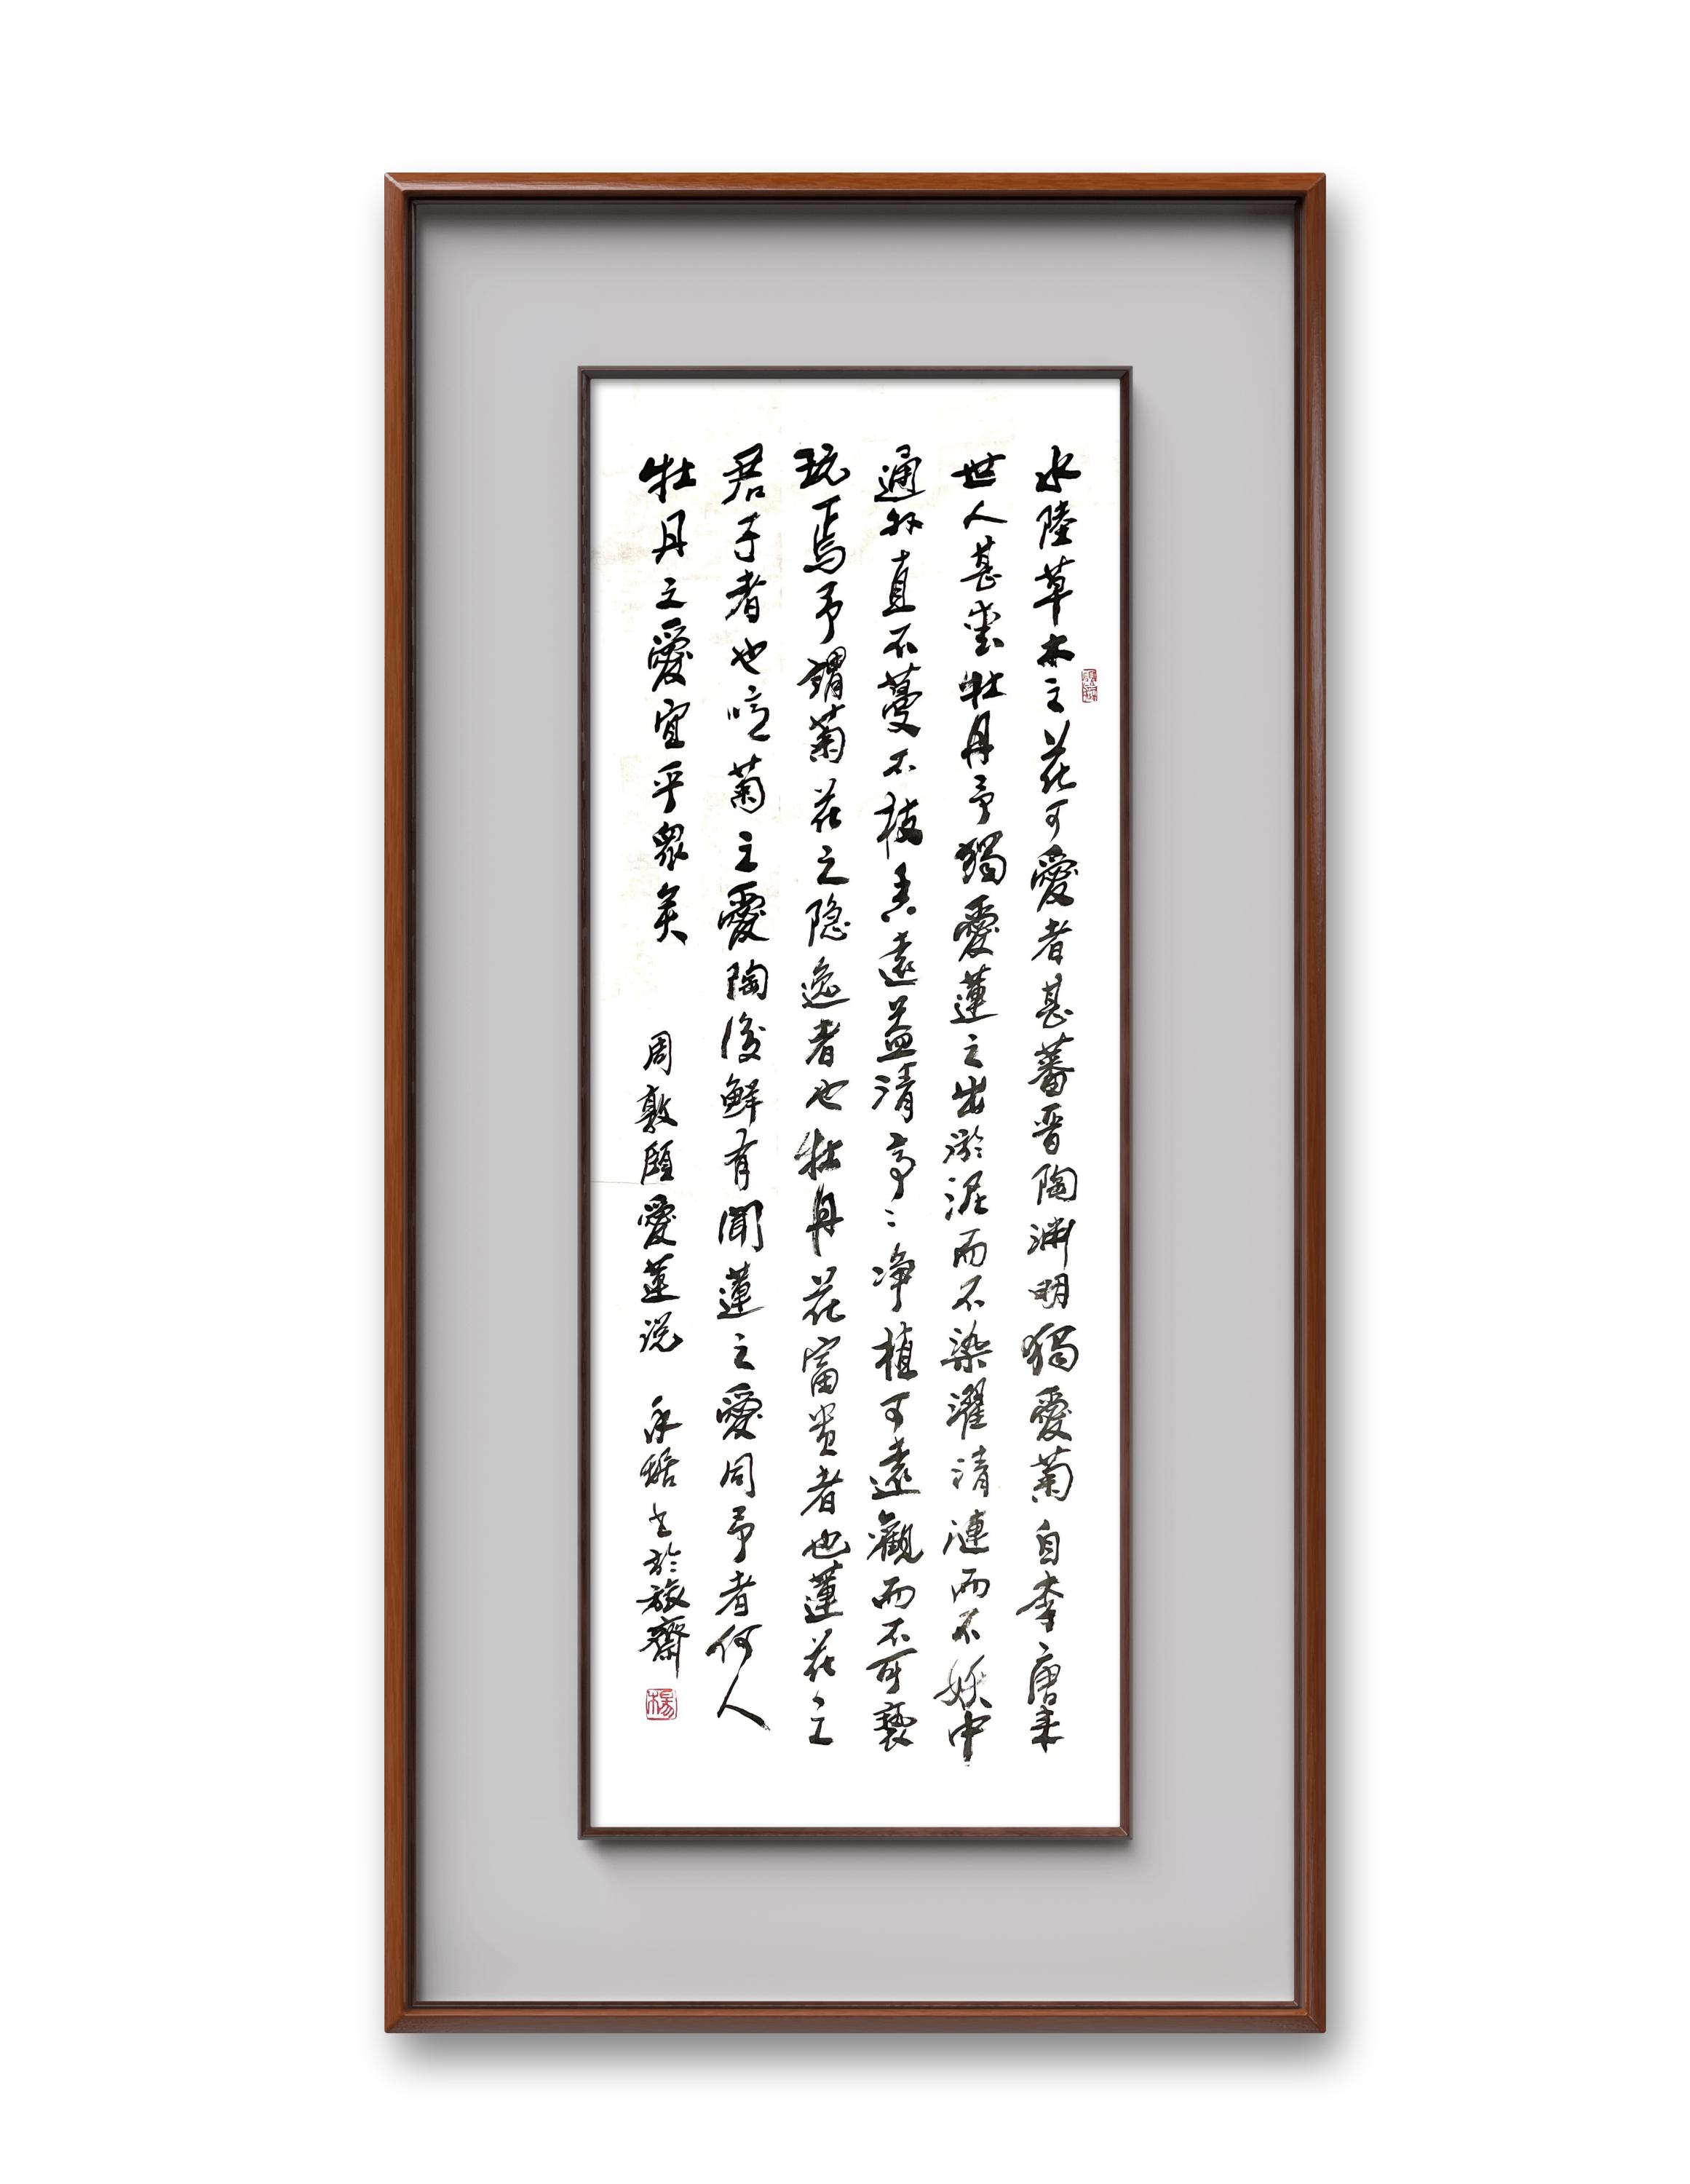 水陸草木之花可愛者甚蕃晉陶渊明獨愛菊自李唐来
世人甚愛牡丹予獨愛蓮之出淤泥而不染濯清漣而不妖中
通外直不蔓不枝香遠益清亭〻净植可遠觀而不可褻
玩焉予謂菊花之隐逸者也牡丹花富贵者也蓮花之
君子者也噫菊之愛陶後鮮有聞蓮之愛同予者何人
牡丹之愛宜乎眾矣 周敦頤愛蓮说 永 书於 齋
楊